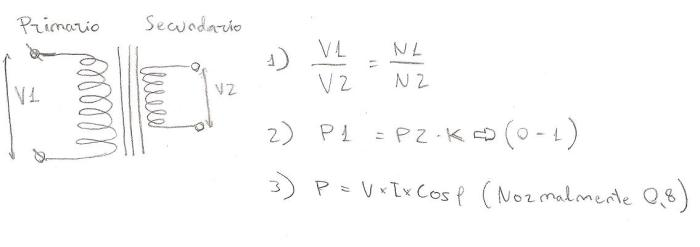 Primario Secundario
V1 V2
1) V1/V2 = N1/N2
2) P1 = P2·K ⇨ (0-1)
3) P = V×I×Cosρ (Normalmente 0,8)